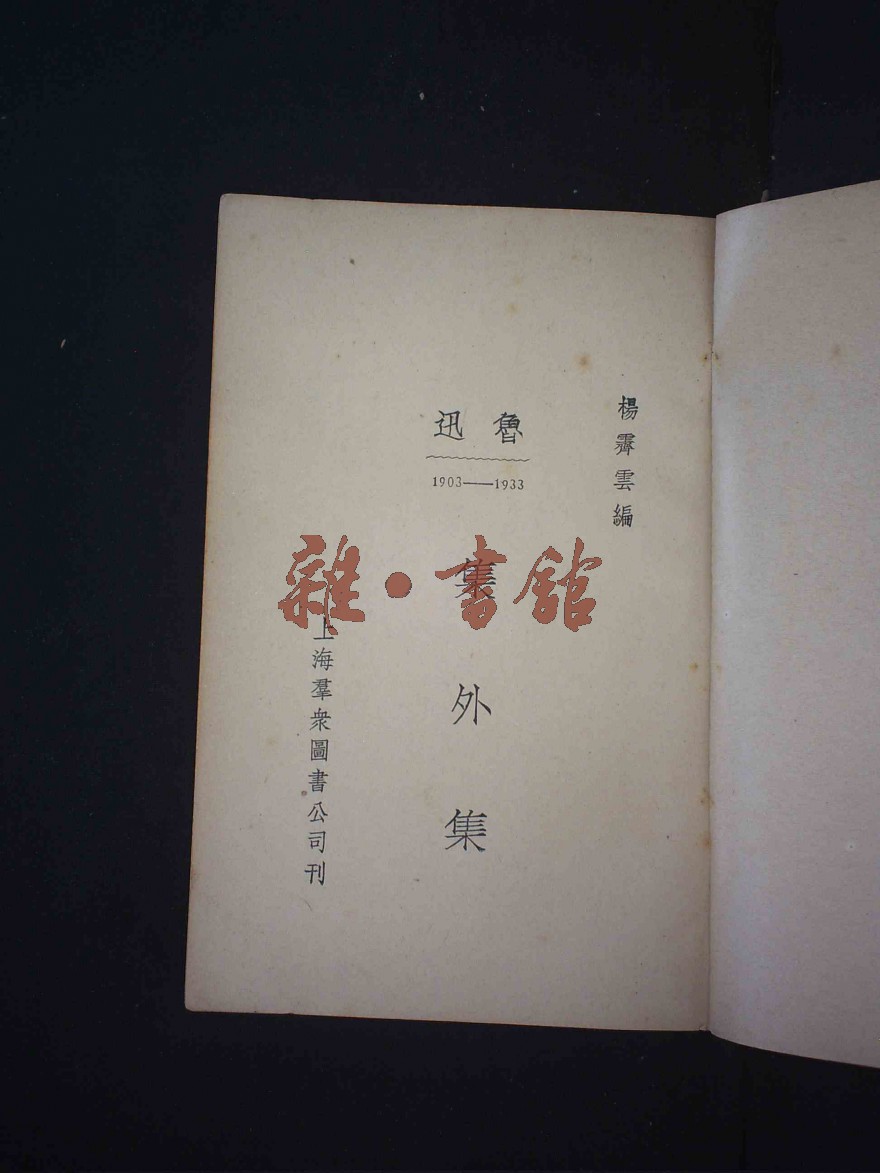 楊霽雲編
魯迅
1903——1933
集外集
上海羣衆圖書公司刊
雜·書館